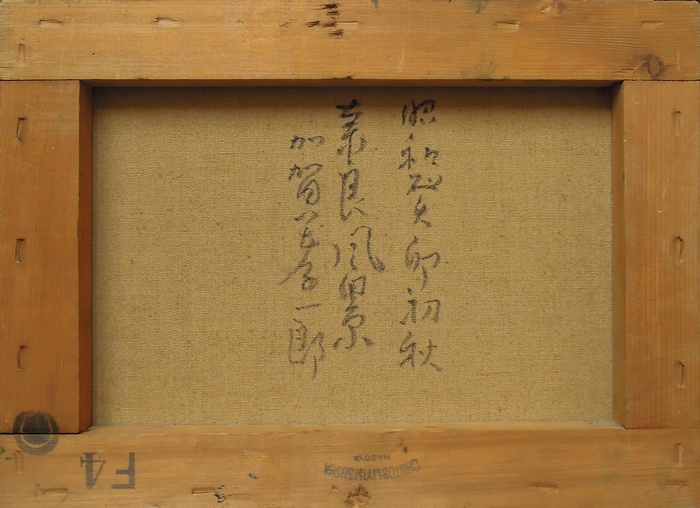 昭和癸卯初秋
奈良風景
加賀孝一郎
F4
NAGOYA